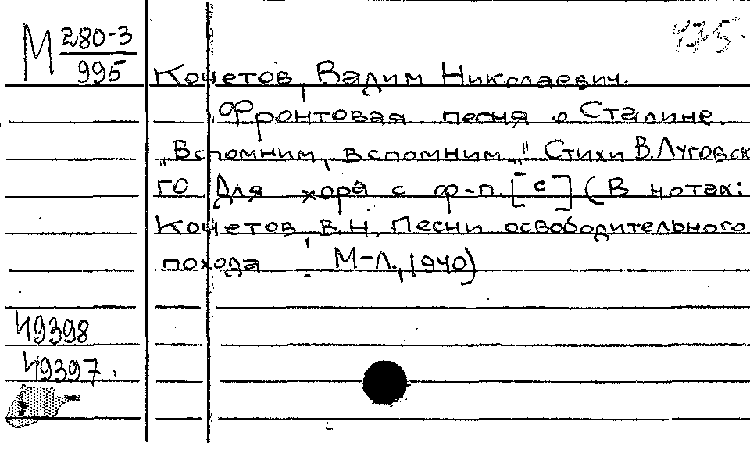 М 280-3
995
435
Кочетов, Вадим Николаевич.
Фронтовая песня о Сталине.
"Вспомним, вспомним..." Стихи В. Луговско
го Для хора с ф-п. [c] (В нотах:
Кочетов В.Н. Песни освободительного
похода. М-Л., 1940)
49398
49397.